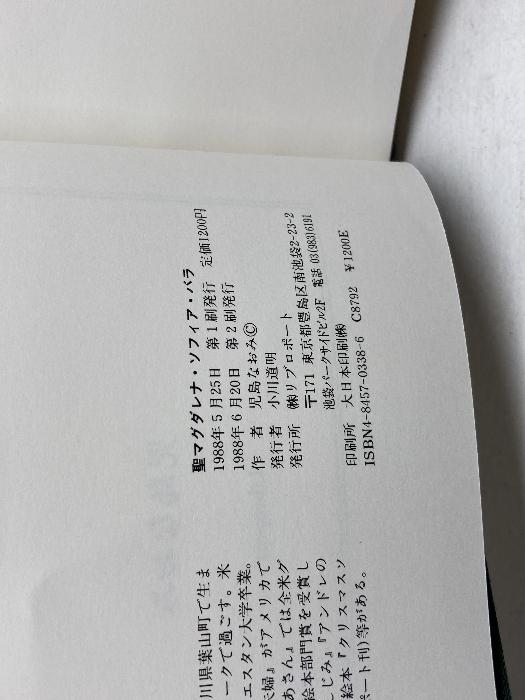 聖マグダレナ・ソフィア・バラ
1988年5月25日 第1刷発行 定価1200円
1988年6月20日 第2刷発行
作者 児島なおみ©
発行者 小川道明
発行所 ㈱リブロポート
〒171 東京都豊島区南池袋2-23-2
池袋パークサイドビル2F 電話 03(983)6191
印刷所 大日本印刷㈱
ISBN4-8457-0338-6 C8792 ¥1200E
川県葉山町で生ま
ークで過ごす。米
エスタン大学卒業。
夫婦』がアメリカで
あさん』では全米グ
絵本部門賞を受賞し
じみ』『アンドレの
絵本『クリスマスソ
ポート刊)等がある。